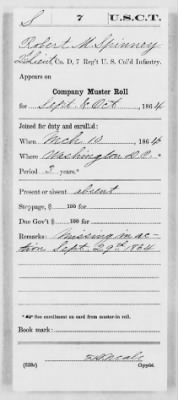 S | 7 | U.S.C.T.
Robert M. Spinney
2 Lieut, Co. D, 7 Reg't U. S. Col'd Infantry.
Appears on
Company Muster Roll
for Sept. & Oct, 1864
Joined for duty and enrolled:
When Mch 12, 1864
Where Washington D.C. *
Period 3 years.*
Present or absent absent
Stoppage, $ 100 for
Due Gov't $ 100 for
Remarks: Missing in ac-
tion Sept. 29th 1864
*See enrollment on card from muster-in roll.
Book mark:
(858c) Copyist.